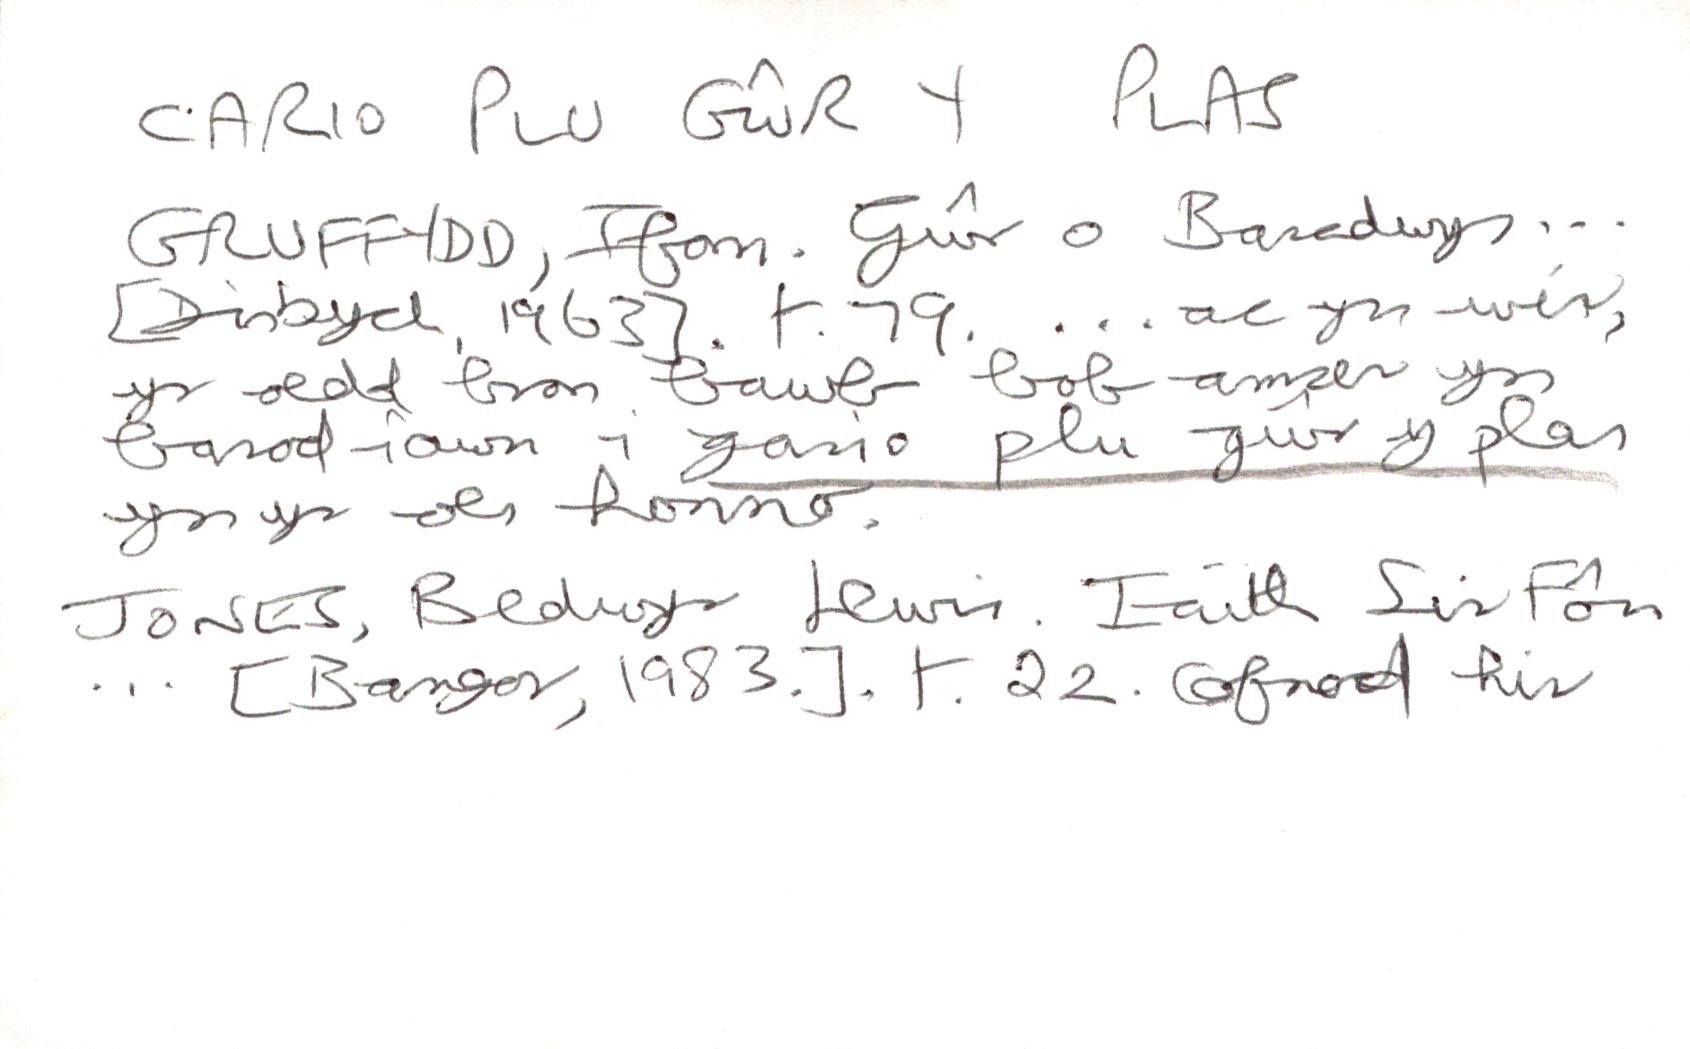 CARIO PLU GŴR Y PLAS
GRUFFYDD, Ifan. Gŵr o Baradwys...
[Dinbych, 1963]. t. 79. ...ac yn wir,
yr oedd bron bawb bob amser yn
barod iawn i gario plu gŵr y plas
yn yr oes honno.
JONES, Bedwyr Lewis. Iaith Sir Fôn
... [Bangor, 1983.]. t. 22. Cofnod hir